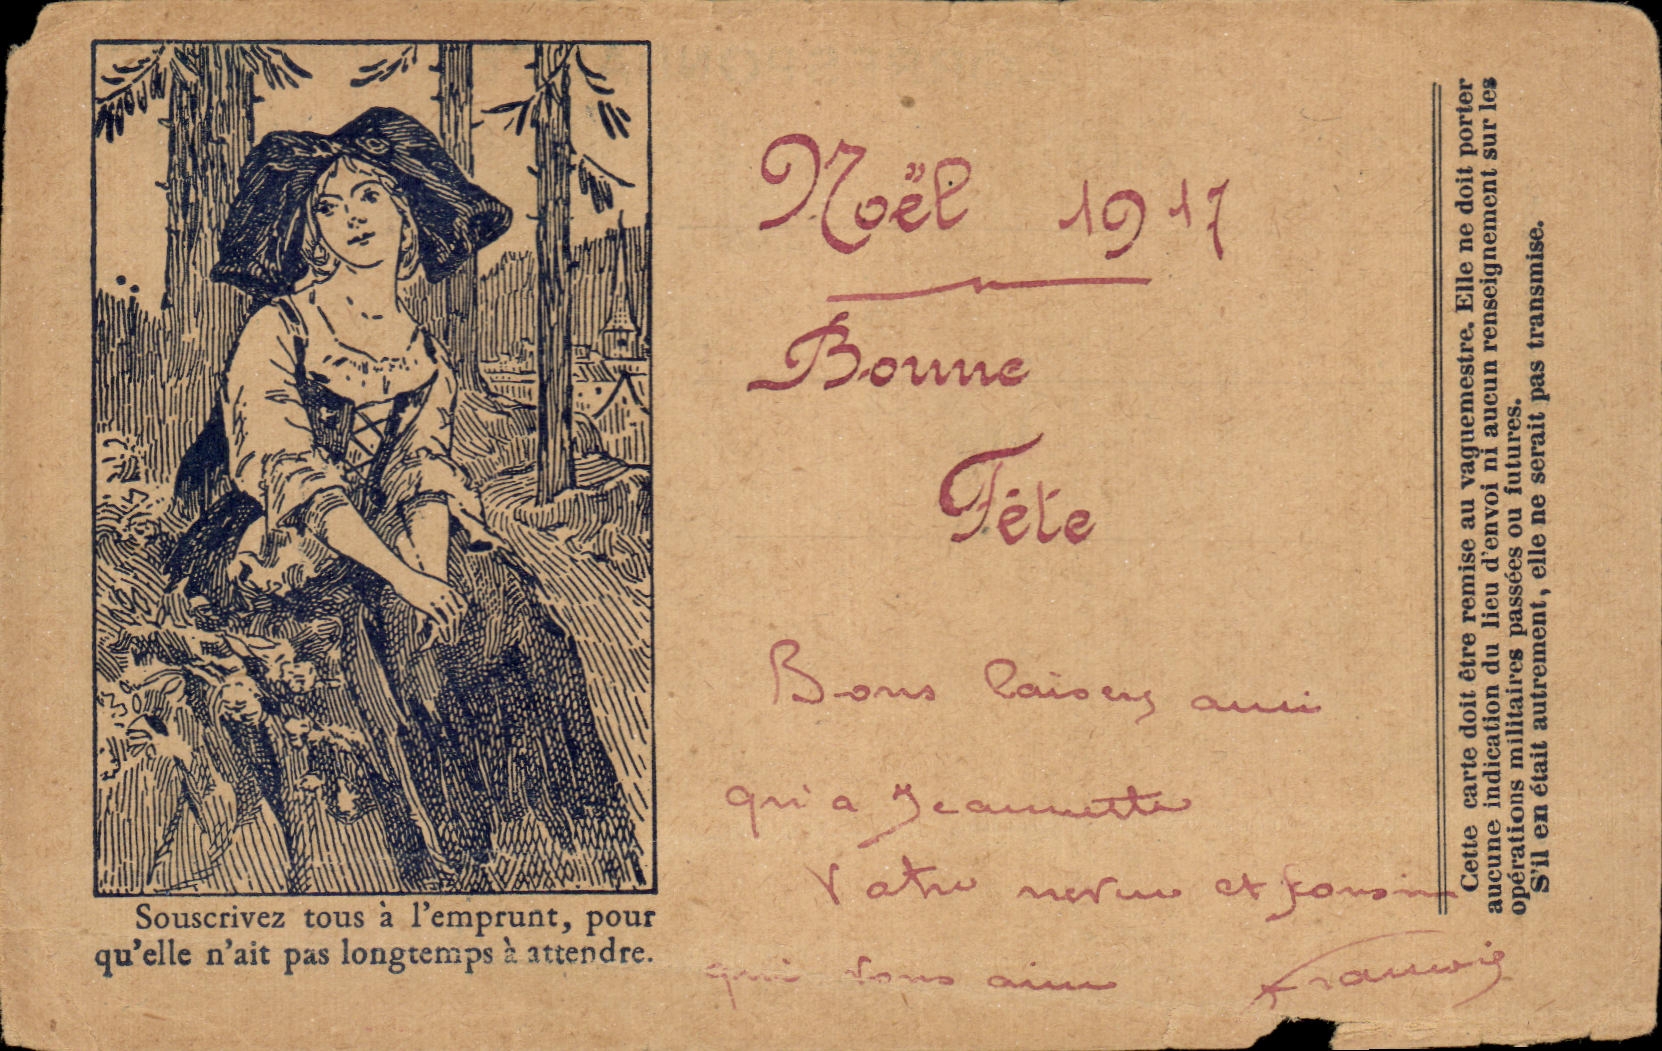 Noël 1917
Bonne
Fête
Bons baisers ainsi
qu'a Jeannette
Votre neveu et parrain
qui vous aime François
Souscrivez tous à l'emprunt, pour
qu'elle n'ait pas longtemps à attendre.
Cette carte doit être remise au vaguemestre. Elle ne doit porter
aucune indication du lieu d'envoi ni aucun renseignement sur les
opérations militaires passées ou futures.
S'il en était autrement, elle ne serait pas transmise.